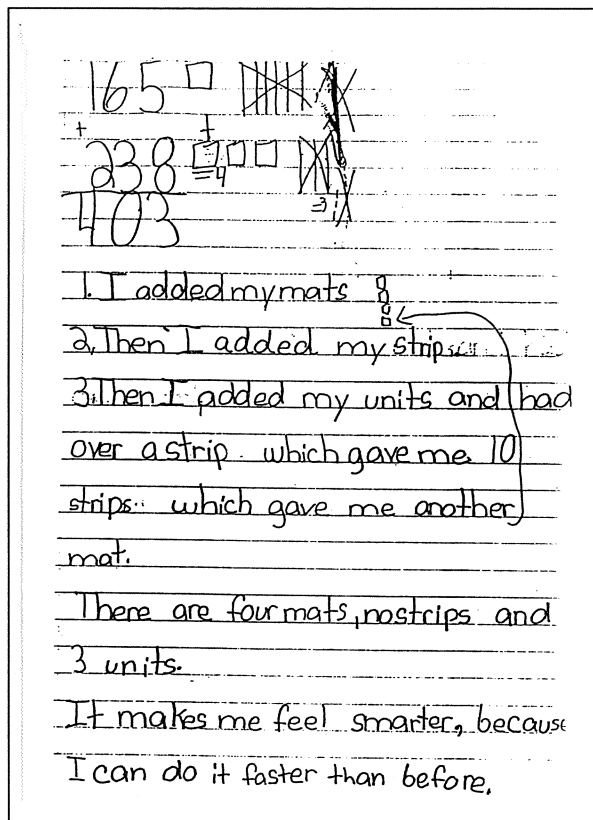 165
+ +
238 =4
403 3
1. I added my mats
2. Then I added my strips
3. Then I added my units and had
over a strip. which gave me 10
strips.. which gave me another
mat.
There are four mats, no strips and
3 units.
It makes me feel smarter, because
I can do it faster than before.